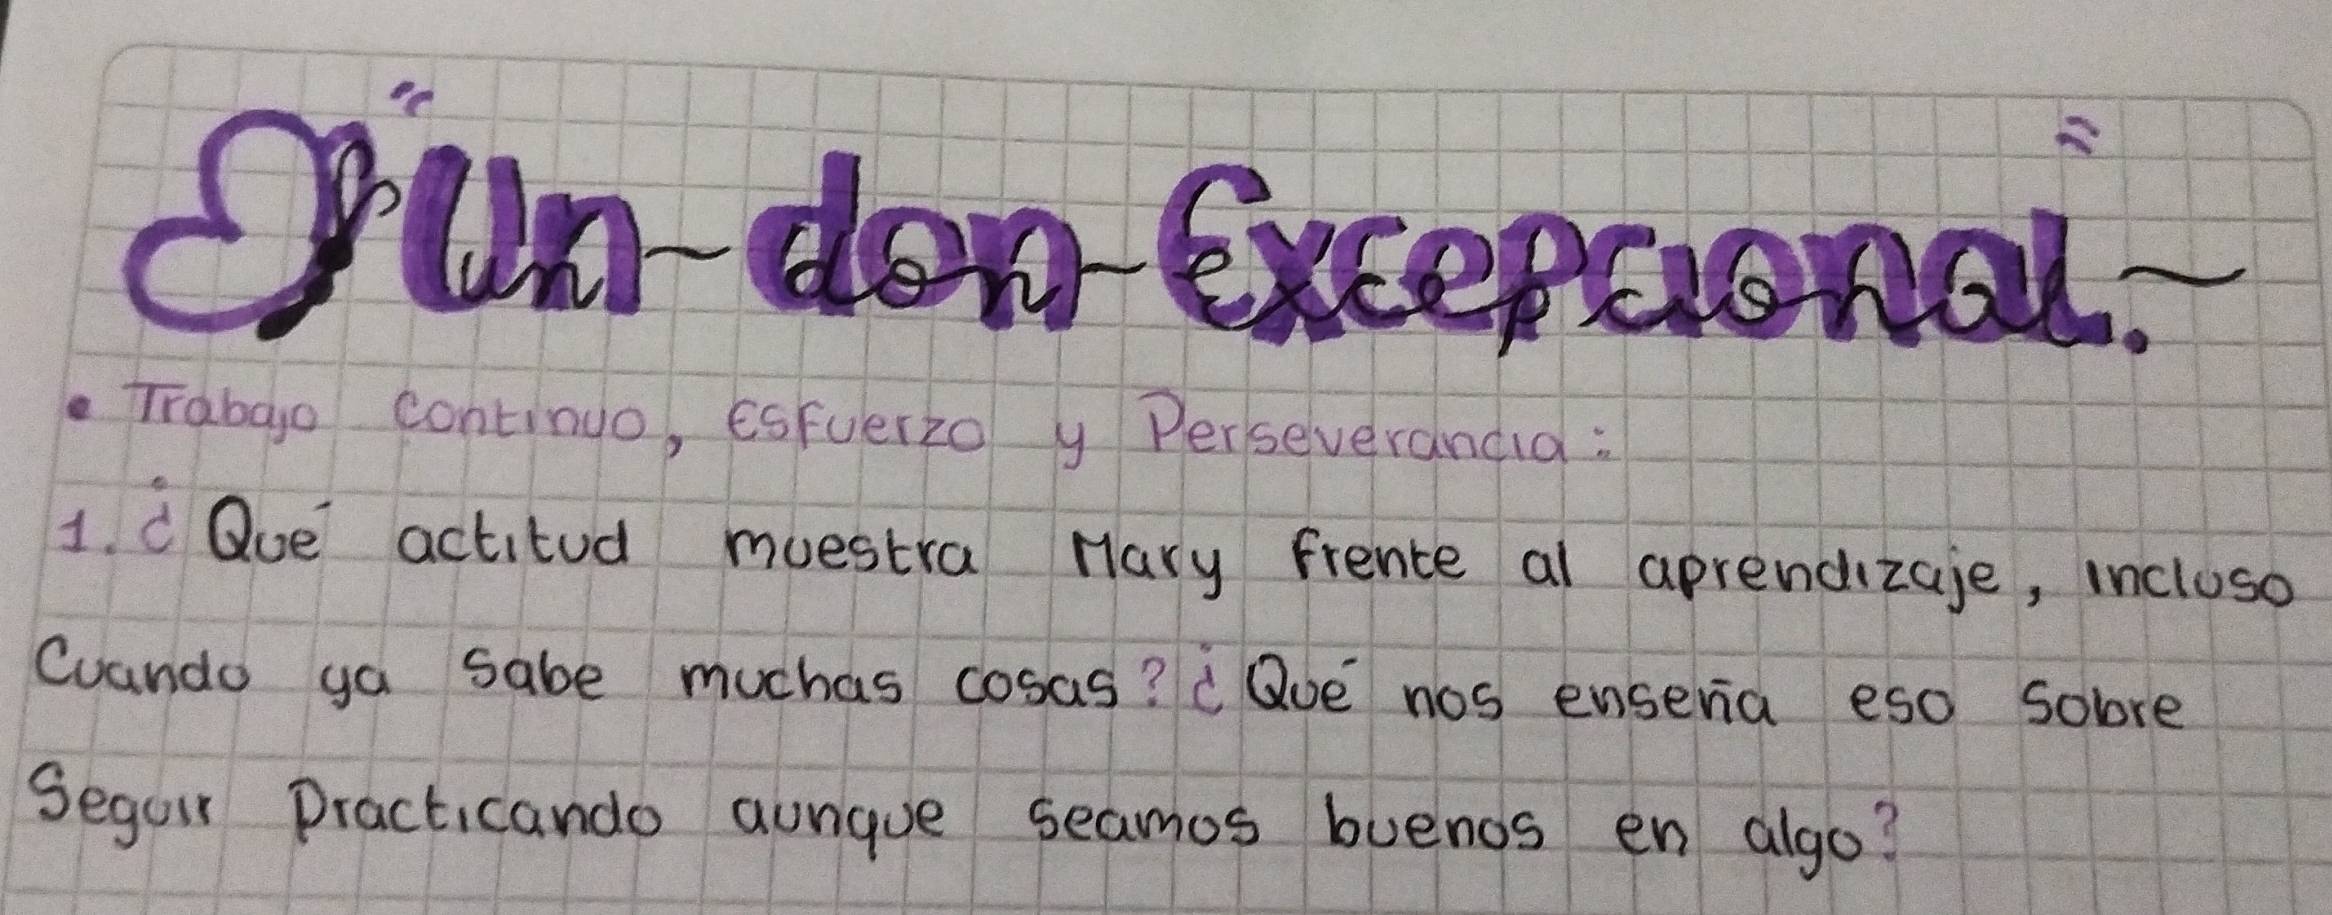 "Un-don-Excepcional.~"
• Trabajo continuo, Esfuerzo y Perseverancia:
1. ¿Qué actitud muestra Mary frente al aprendizaje, incluso
Cuando ya sabe muchas cosas? ¿Qué nos enseña eso sobre
Seguir Practicando aunque seamos buenos en algo?